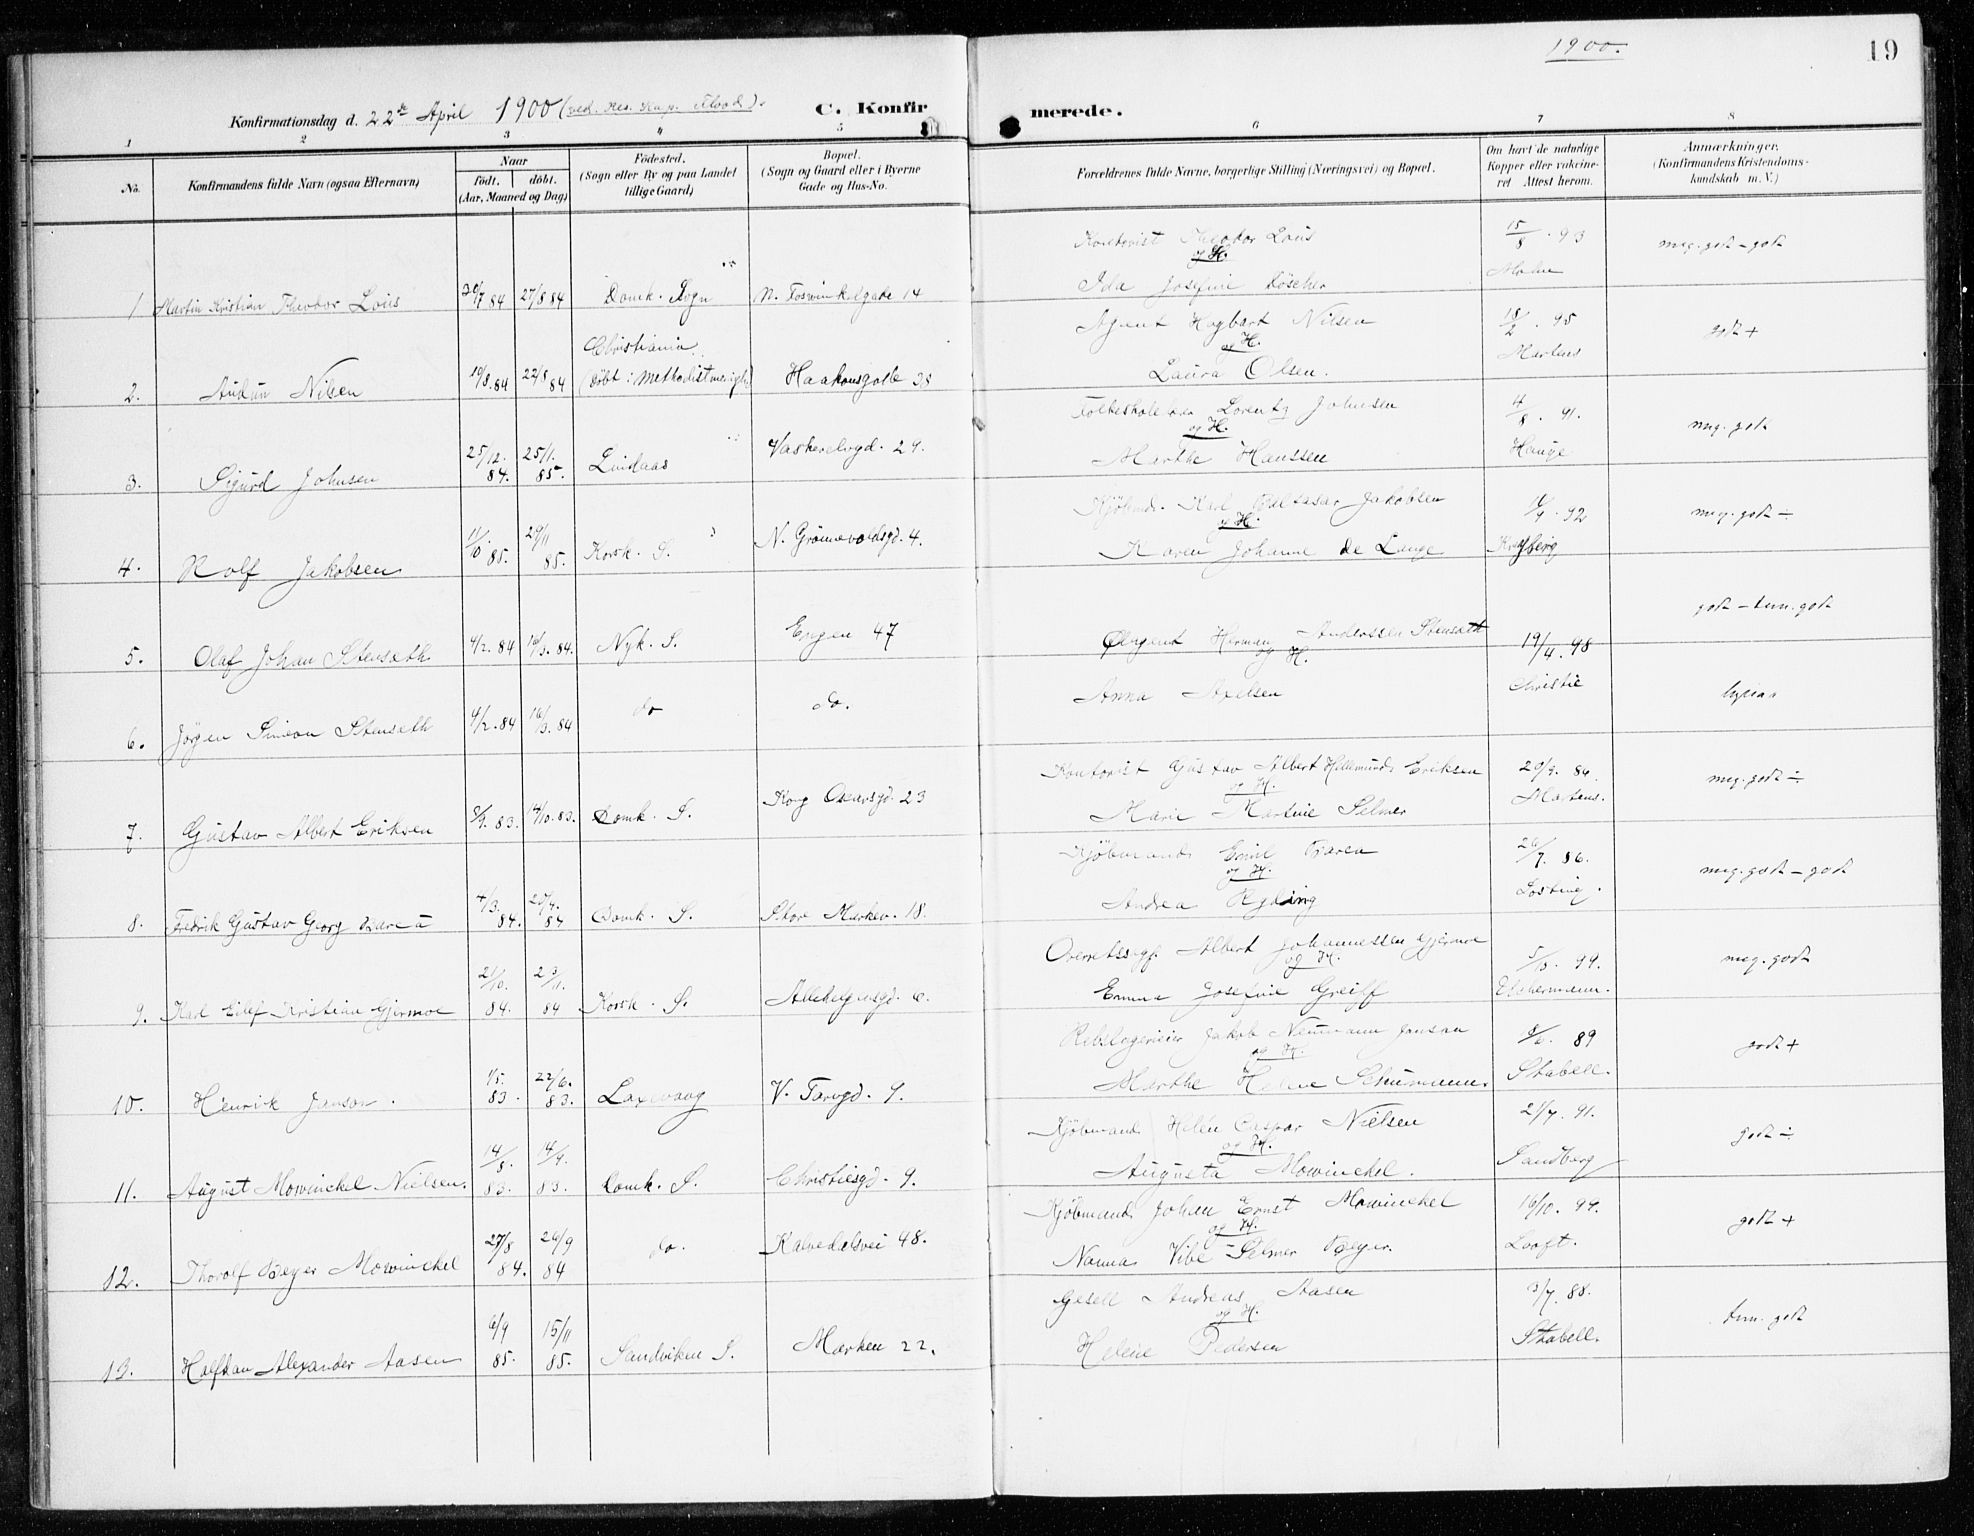 1900.
19
Konfirmationsdag d. 22de April 1900 (ved. Res. Kap. Flood).
C. Konfirmerede.
1 2 3 4 5 6 7 8
No.
Konfirmandens fulde Navn (ogsaa Efternavn)
Naar
født. døbt.
(Aar, Maaned og Dag)
Födested.
(Sogn eller By og paa Landet
tillige Gaard)
Bopæl.
(Sogn og Gaard eller i Byerne
Gade og Hus-No.
Forældrenes fulde Navne, borgerlige Stilling (Næringsvei) og Bopæl.
Om havt de naturlige
Kopper eller vakcine-
ret Attest herom.
Anmærkninger.
(Konfirmandens Kristendoms-
kundskab m. V.)
Theodor Lous 15/8 . 93 meg. godt - godt
og H.
1 Martin Kristian Theodor Lous 20/7 84 27/8 84 Domk. Sogn N. Foswinkelgade 14 Ida Josefine Döscher
Christiania Agent Hagbart Nilsen 18/2 . 95 godt +
og H. Martens
2. Audun Nilsen 19/8. 84 84 (döbt i Methodistmenigh) Haakonsgade 38 Laura Olsen.
Lorentz Johnsen 4/8 . 91. meg. godt
og H.
3. Sigurd Johnsen 25/12. 84. 25/1. 85. Lindaas Vaskerelvgd. 29. Marthe Hanssen Hauge
Kjöbmd. Karl Baltasar Jakobsen 92 meg. godt ÷
og H.
4. Rolf Jakobsen 11/10 85. 29/11 85. Korsk. S. N. Grönnevoldsgd. 4. Karen Johanne de Lange Krag
godt - tem. godt
5. Olaf Johan Stenseth 4/2. 84 16/3. 84. Nyk. S. Engen 47 Herman Anderssen Stenseth 19/4. 98
og H.
Anna Axelsen Christie
6. Jørgen Simeon Stenseth 4/2. 84 16/3. 84 do do.
Kontorist Gustav Albert Hillemunds Eriksen 20/9. 84. meg. godt ÷
og H. Martens.
7. Gustav Albert Eriksen 83. 14/10. 83. Domk. S. Kong Oscarsgd. 23 Marie Martine Selmer
Kjöbmand Emil Barca 26/7. 86. meg. godt - godt
og H.
8. Fredrik Gustav Georg Barca 4/3. 84. 20/4. 84 Domk. S. Store Markev. 18. Andrea Ryding Losting.
Overretssagf. Albert Johannessen Gjermoe 99. meg. godt
og H.
9. Karl Eilef Kristian Gjermoe 21/10. 84. 23/11. 84 Korsk. S. Allehelgensgd. 6. Emma Josefine Greiff
Rebslagereier Jakob Neumann Janson 8/6. 89 godt +
og H.
10. Henrik Janson. 1/5. 83. 22/6. 83. Laxevaag V. Torvgd. 9. Marthe Helene Schumann. Stabell.
Kjöbmand Caspar Nielsen 21/7. 91. godt ÷
og H.
11. August Mowinckel Nielsen. 14/8. 83. 14/9. 83. Domk. S. Christiesgd. 9. Augusta Mowinckel. Sandberg
Kjöbmand Johan Ernst Mowinckel 16/10. 99. godt +
og H.
12. Thorolf Beyer Mowinckel 27/8 84. 26/9 84 do. Kalvedalsvei 48. Nanna Vibe Selmer Beyer. Looft.
Gesell Andreas Aasen 3/7. 88. tem. godt
og H.
13. Halfdan Alexander Aasen 6/9 85. 15/11 85. Sandviken S. Marken 22. Helene Pedersen Stabell.